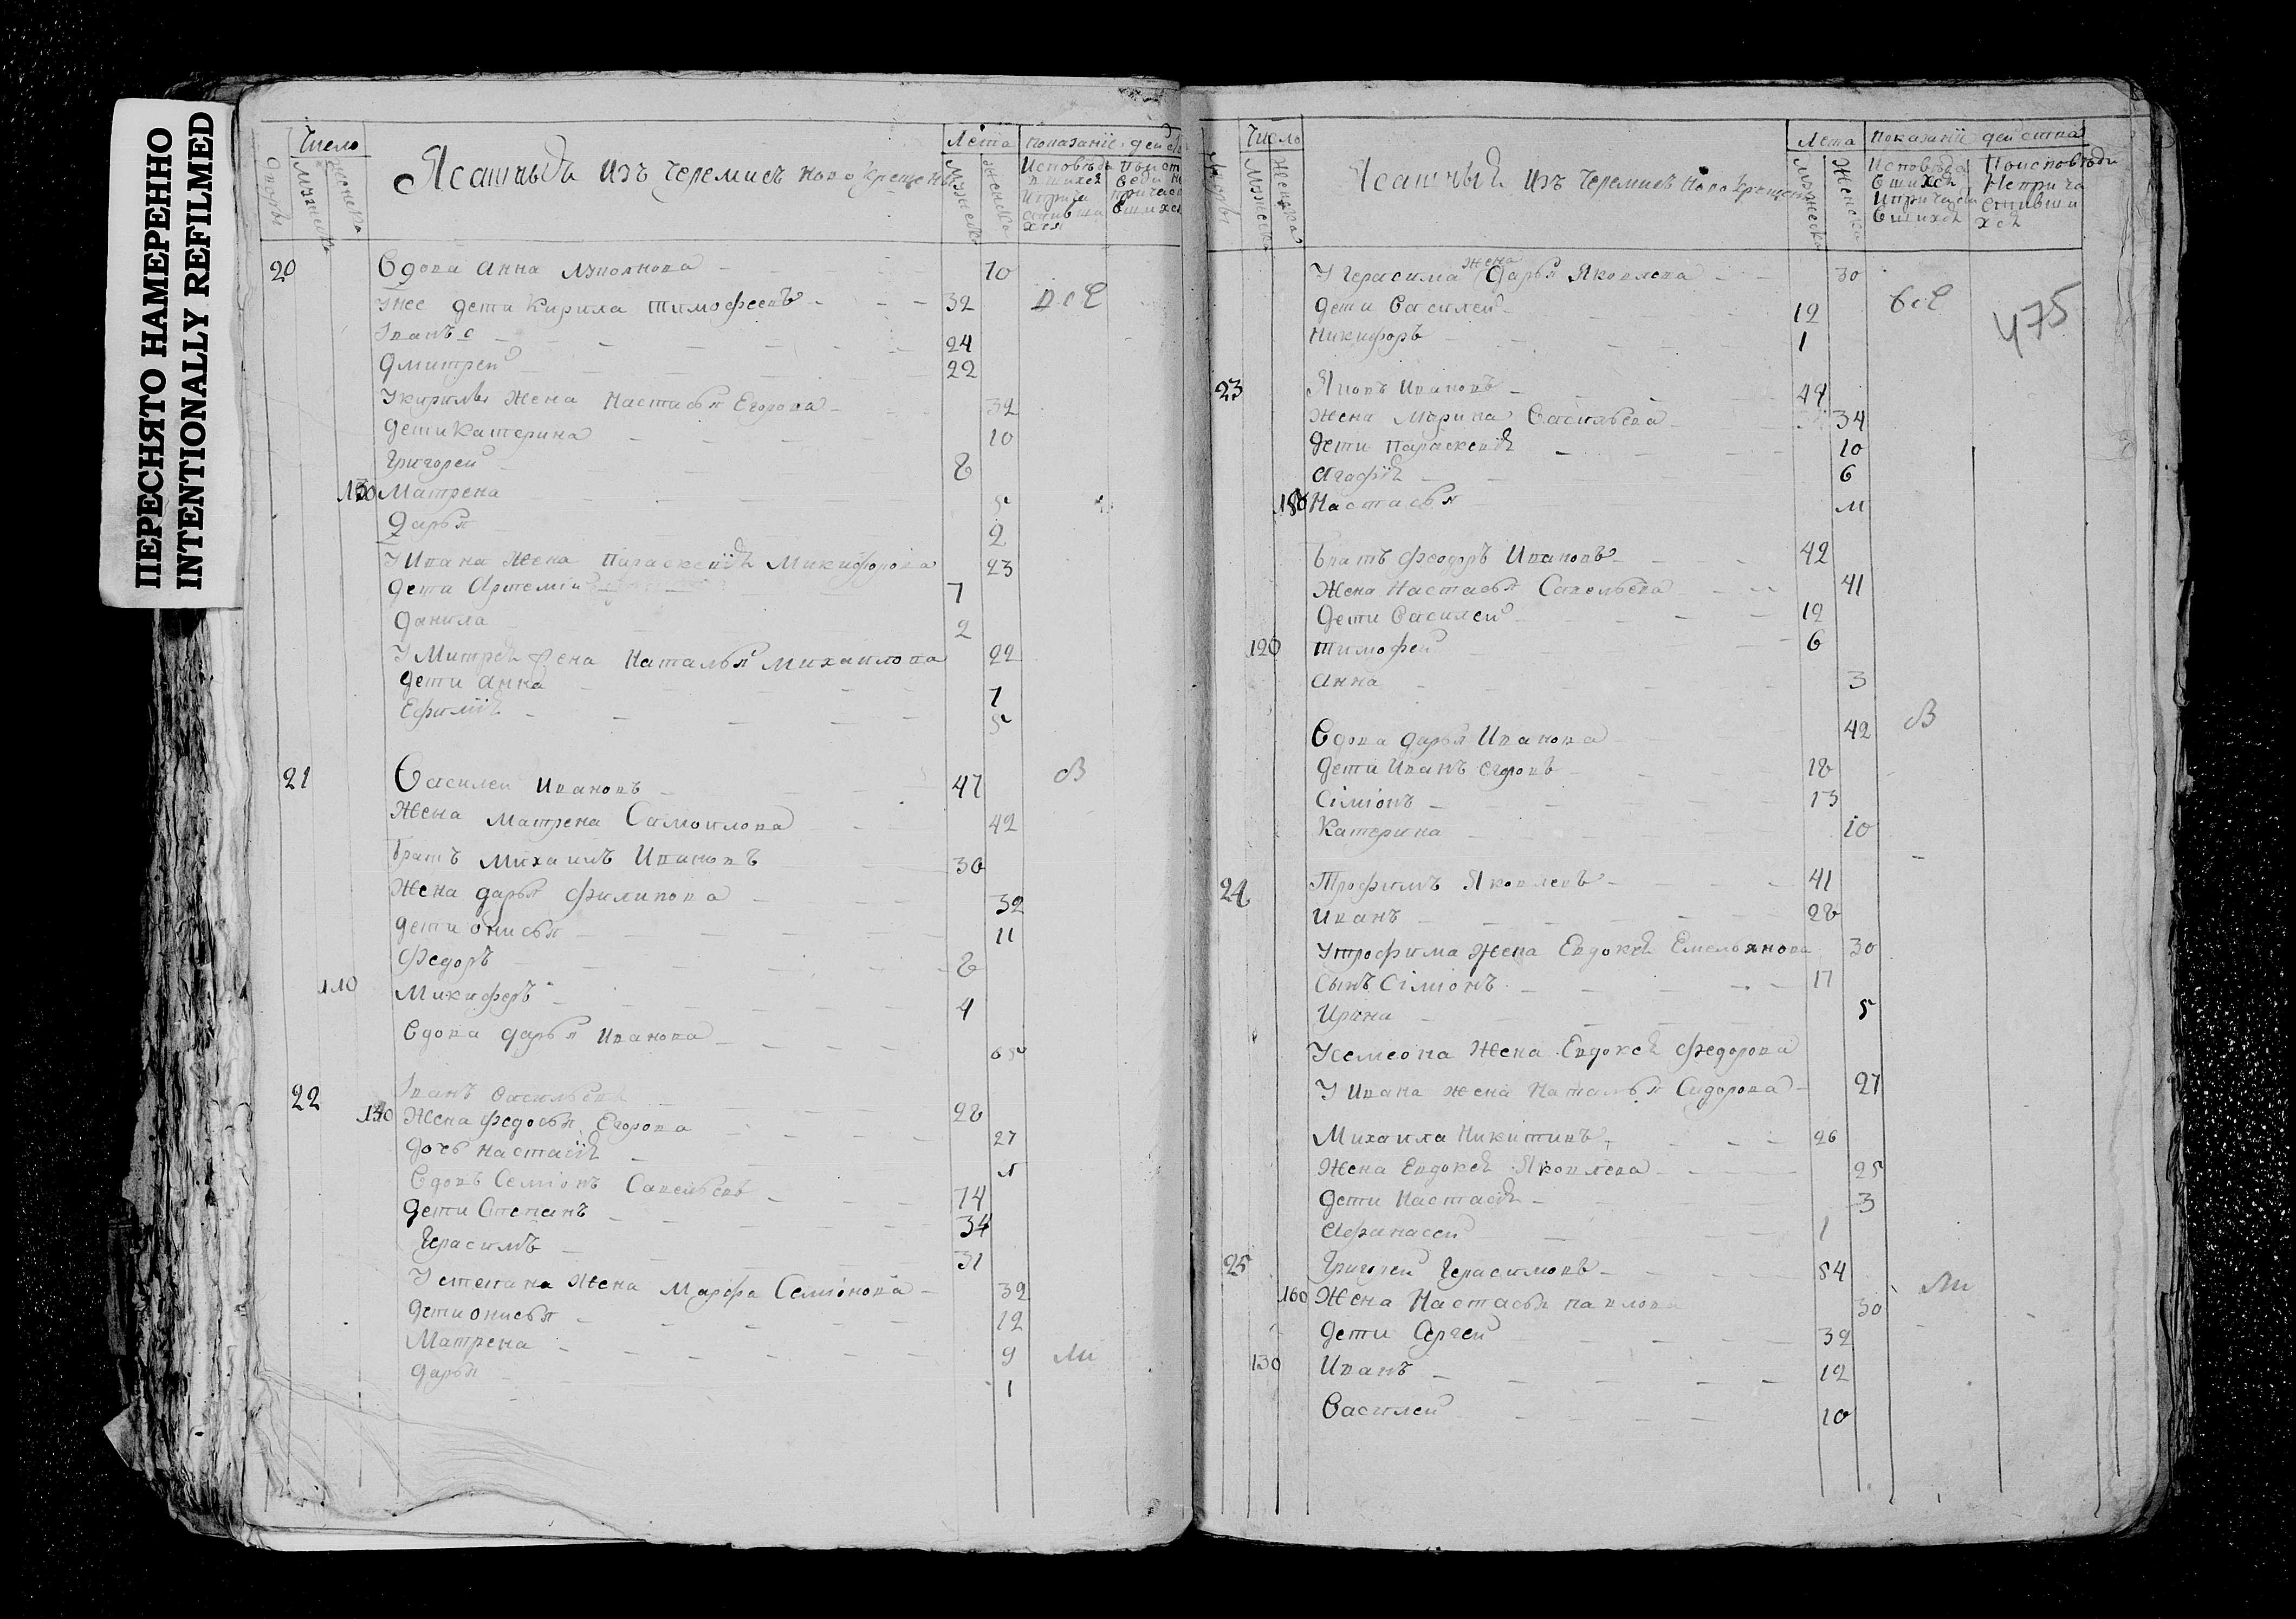 ПЕРЕСНЯТО НАМЕРЕННО
INTENTIONALLY REFILMED
Число
Мужеска
Женска
Ясашныя изъ черемисъ ново крещены
Лета
Мужеска
Женска
показание дейс
20 Вдова Анна 70
У нее дети Кирила Тимофеевъ 32 все
Іванъ 24
Дмитрей 22
У Кирилы жена Настасья Егорова 32
дети Катерина 10
Григорей 8
130 Матрена 5
Дарья 2
У Ивана жена Параскевия Микифорова 23
дети Артемий 7
Данила 2
У Митрея жена Наталья Михаилова 22
дети Анна 7
Ефимия 5
21 Василей Ивановъ 47
Жена Матрена Самоилова 42
Братъ Михаилъ Ивановъ 30
Жена Дарья Филипова 32
дети Онисья 11
Федоръ 8
110 Микифоръ 4
Вдова Дарья Иванова 65
22 Іванъ Васильевъ 28
Жена Федосья Егорова 27
дочь Настасия
Вдовъ Семіонъ Савельевъ 74
дети Степанъ 34
Герасимъ 31
У Степана жена Марфа Семіонова 32
дети Онисья 12
Матрена 9
Дарья 1
Число
Мужеска
Женска
Ясашныя изъ черемисъ ново крещены
Лета
Мужеска
Женска
показании действа
475
У Герасима жена Дарья Яковлева 30
дети Василей 12 все
Никифоръ 1
23 Яковъ Ивановъ 44
Жена Марина Васильева 34
дети Параскевия 10
Агафия 6
Настасья
Братъ Феодоръ Ивановъ 42
Жена Настасья Савельева 41
дети Василей 12
120 Тимофей 6
Анна 3
Вдова Дарья Иванова 42
дети Иванъ Егоровъ 18
Сіміонъ 13
Катерина 10
24 Трофимъ Яковлевъ 41
Иванъ 28
У Трофима жена Евдокея Емельянова 30
Сынъ Сіміонъ 17
Ирина 5
У Семеона жена Евдокея Федорова
У Ивана жена Наталья Сидорова 27
Михаила Никитинъ 26
Жена Евдокея Яковлева 25
дети Настасия 3
Афанасей 1
25 Григорей Герасимовъ 54
160 Жена Настасья Павлова 50
дети Сергей 32
130 Иванъ 12
Василей 10